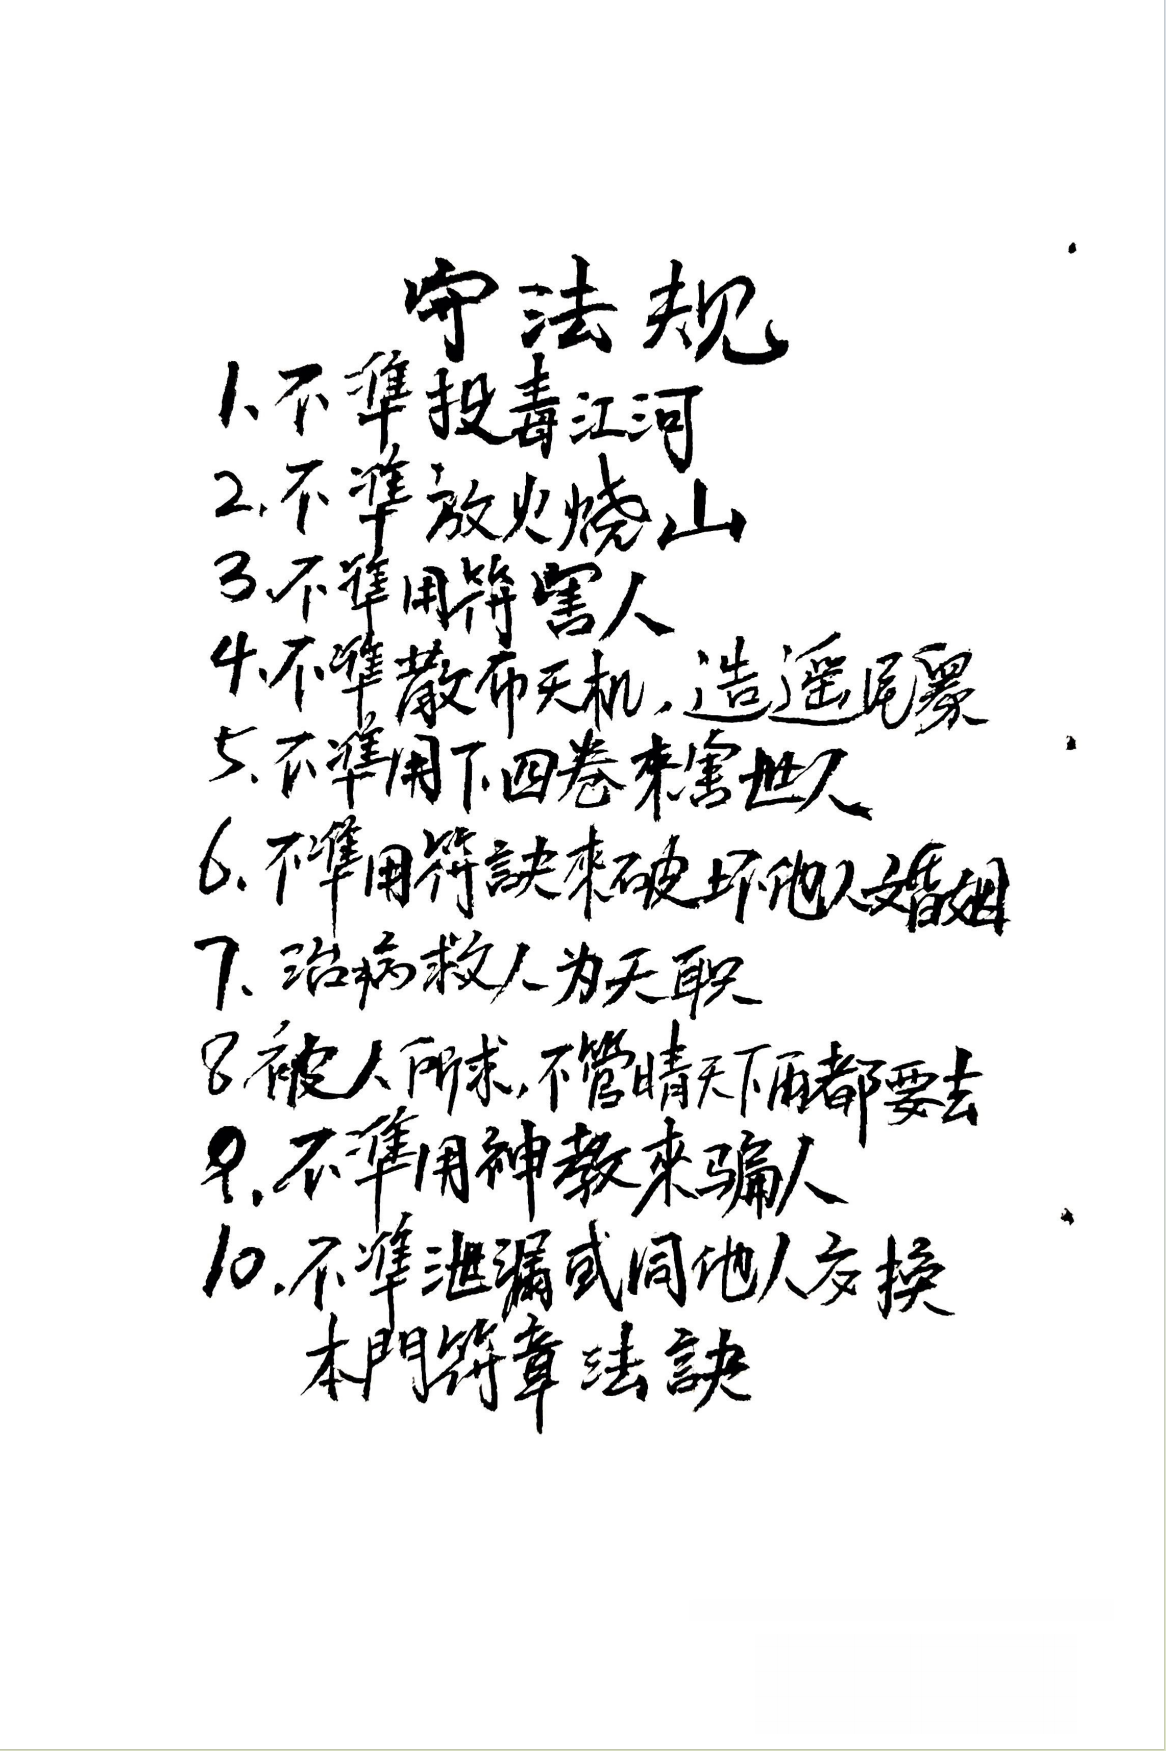 守法规
1、不準投毒江河
2、不準放火烧山
3、不準用符害人
4、不準散布天机,造遥惑眾
5、不準用下四卷來害世人
6、不準用符訣來破坏他人婚姻
7、治病救人为天职
8、被人所求,不管晴天下雨都要去
9、不準用神教來骗人
10、不準泄漏或同他人交换
本門符章法訣